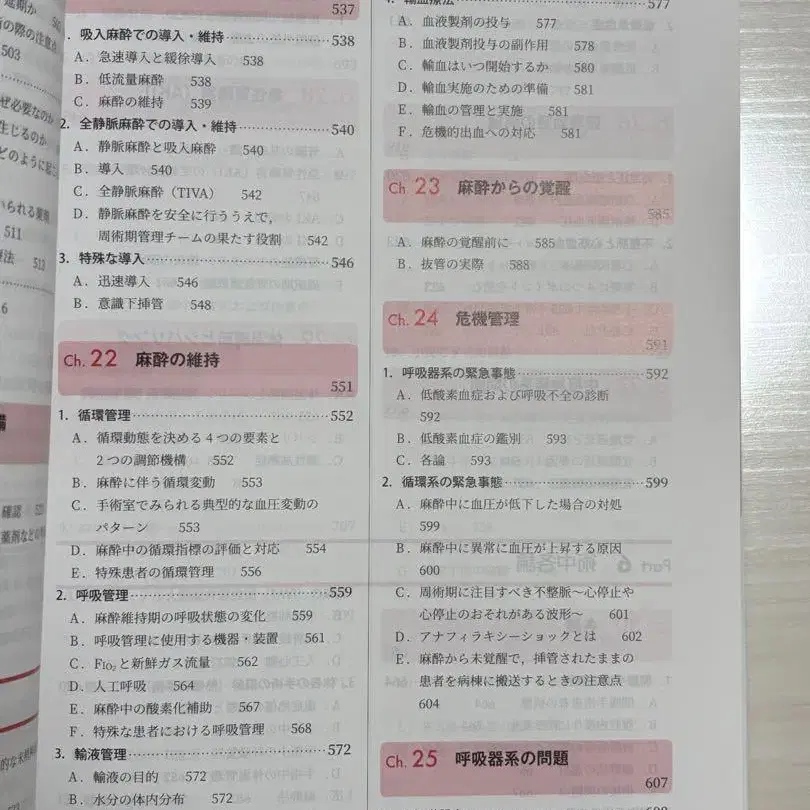 537
1. 吸入麻酔での導入・維持 538
A. 急速導入と緩徐導入 538
B. 低流量麻酔 538
C. 麻酔の維持 539
2. 全静脈麻酔での導入・維持 540
A. 静脈麻酔と吸入麻酔 540
B. 導入 540
C. 全静脈麻酔（TIVA） 542
D. 静脈麻酔を安全に行ううえで，
周術期管理チームの果たす役割 542
3. 特殊な導入 546
A. 迅速導入 546
B. 意識下挿管 548
Ch. 22 麻酔の維持
551
1. 循環管理 552
A. 循環動態を決める4つの要素と
2つの調節機構 552
B. 麻酔に伴う循環変動 553
C. 手術室でみられる典型的な血圧変動の
パターン 553
D. 麻酔中の循環指標の評価と対応 554
E. 特殊患者の循環管理 556
2. 呼吸管理 559
A. 麻酔維持期の呼吸状態の変化 559
B. 呼吸管理に使用する機器・装置 561
C. FIO₂と新鮮ガス流量 562
D. 人工呼吸 564
E. 麻酔中の酸素化補助 567
F. 特殊な患者における呼吸管理 568
3. 輸液管理 572
A. 輸液の目的 572
B. 水分の体内分布 572
4. 輸血療法 577
A. 血液製剤の投与 577
B. 血液製剤投与の副作用 578
C. 輸血はいつ開始するか 580
D. 輸血実施のための準備 581
E. 輸血の管理と実施 581
F. 危機的出血への対応 581
Ch. 23 麻酔からの覚醒
585
A. 麻酔の覚醒前に 585
B. 抜管の実際 588
Ch. 24 危機管理
591
1. 呼吸器系の緊急事態 592
A. 低酸素血症および呼吸不全の診断
592
B. 低酸素血症の鑑別 593
C. 各論 593
2. 循環系の緊急事態 599
A. 麻酔中に血圧が低下した場合の対処
599
B. 麻酔中に異常に血圧が上昇する原因
600
C. 周術期に注目すべき不整脈～心停止や
心停止のおそれがある波形～ 601
D. アナフィラキシーショックとは 602
E. 麻酔から未覚醒で，挿管されたままの
患者を病棟に搬送するときの注意点
604
Ch. 25 呼吸器系の問題
607
503
511
513